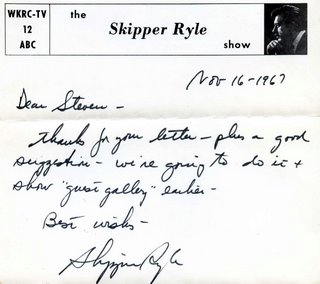 WKRC-TV
12
ABC
the
Skipper Ryle
show
Nov 16-1967
Dear Steven -
Thanks for your letter - plus a good
suggestion - we're going to do it +
show "guest gallery" earlier -
Best wishes -
Skipper Ryle